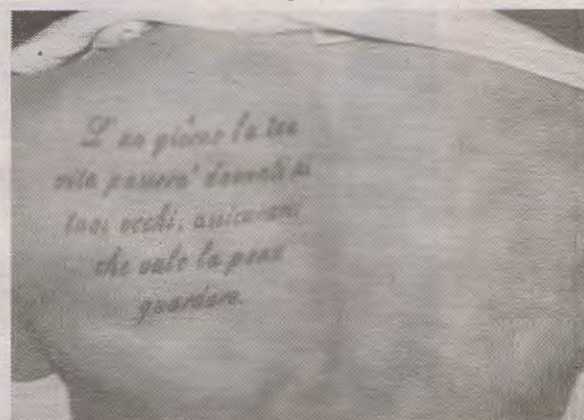 L' un giorno la tua
vita passera' davanti ai
tuoi occhi, assicurarti
che vale la pena
guardare.